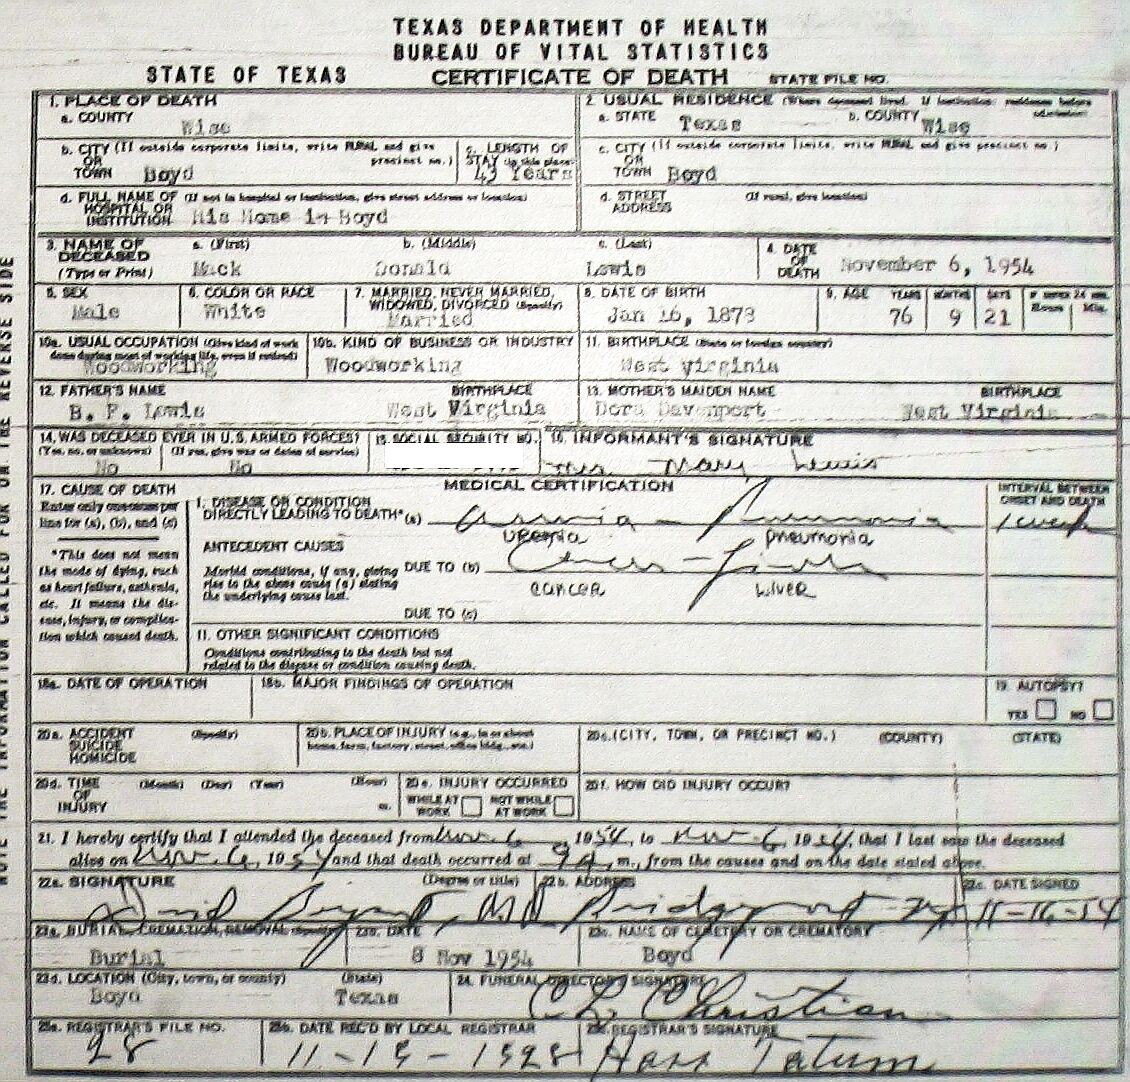 TEXAS DEPARTMENT OF HEALTH
BUREAU OF VITAL STATISTICS
STATE OF TEXAS CERTIFICATE OF DEATH STATE FILE NO.
1. PLACE OF DEATH
a. COUNTY
Wise
2. USUAL RESIDENCE (Where deceased lived. If institution: residence before admission)
a. STATE Texas b. COUNTY Wise
b. CITY (If outside corporate limits, write RURAL and give
OR precinct no.)
TOWN Boyd
c. LENGTH OF
STAY (in this place)
43 Years
c. CITY (If outside corporate limits, write RURAL and give precinct no.)
OR
TOWN Boyd
d. FULL NAME OF (If not in hospital or institution, give street address or location)
HOSPITAL OR
INSTITUTION His Home in Boyd
d. STREET (If rural, give location)
ADDRESS
3. NAME OF a. (First) b. (Middle) c. (Last)
DECEASED
(Type or Print) Mack Donald Lewis
4. DATE
OF
DEATH November 6, 1954
5. SEX
Male
6. COLOR OR RACE
White
7. MARRIED, NEVER MARRIED,
WIDOWED, DIVORCED (Specify)
Married
8. DATE OF BIRTH
Jan 16, 1878
9. AGE YEARS MONTHS DAYS IF UNDER 24 HRS.
Hours Min.
76 9 21
10a. USUAL OCCUPATION (Give kind of work
done during most of working life, even if retired)
Woodworking
10b. KIND OF BUSINESS OR INDUSTRY
Woodworking
11. BIRTHPLACE (State or foreign country)
West virginia
12. FATHER'S NAME BIRTHPLACE
B. F. Lewis West Virginia
13. MOTHER'S MAIDEN NAME BIRTHPLACE
Dora Davenport West Virginia
14. WAS DECEASED EVER IN U.S. ARMED FORCES?
(Yes, no, or unknown) (If yes, give war or dates of service)
No No
15. SOCIAL SECURITY NO.
16. INFORMANT'S SIGNATURE
Mrs. Mary Lewis
MEDICAL CERTIFICATION
INTERVAL BETWEEN
ONSET AND DEATH
17. CAUSE OF DEATH
Enter only one cause per
line for (a), (b), and (c)
*This does not mean
the mode of dying, such
as heart failure, asthenia,
etc. It means the dis-
ease, injury, or complica-
tion which caused death.
I. DISEASE OR CONDITION
DIRECTLY LEADING TO DEATH* (a) Uremia - Pneumonia 1 week
uremia pneumonia
ANTECEDENT CAUSES
Morbid conditions, if any, giving
rise to the above cause (a) stating
the underlying cause last.
DUE TO (b) Cancer - Liver
cancer Liver
DUE TO (c)
11. OTHER SIGNIFICANT CONDITIONS
Conditions contributing to the death but not
related to the disease or condition causing death.
18a. DATE OF OPERATION
18b. MAJOR FINDINGS OF OPERATION
19. AUTOPSY?
YES NO
20a. ACCIDENT (Specify)
SUICIDE
HOMICIDE
20b. PLACE OF INJURY (e.g., in or about
home, farm, factory, street, office bldg., etc.)
20c. (CITY, TOWN, OR PRECINCT NO.) (COUNTY) (STATE)
20d. TIME (Month) (Day) (Year) (Hour)
OF
INJURY m.
20e. INJURY OCCURRED
WHILE AT WORK NOT WHILE AT WORK
20f. HOW DID INJURY OCCUR?
21. I hereby certify that I attended the deceased from Nov. 6, 1954, to Nov. 6, 1954, that I last saw the deceased
alive on Nov. 6, 1954 and that death occurred at 9 A. m., from the causes and on the date stated above.
22a. SIGNATURE (Degree or title)
David Bryant, MD
22b. ADDRESS
Bridgeport
22c. DATE SIGNED
11-16-54
23a. BURIAL, CREMATION, REMOVAL (Specify)
Burial
23b. DATE
8 Nov 1954
23c. NAME OF CEMETERY OR CREMATORY
Boyd
23d. LOCATION (City, town, or county) (State)
Boyd Texas
24. FUNERAL DIRECTOR'S SIGNATURE
C. L. Christian
25a. REGISTRAR'S FILE NO.
28
25b. DATE REC'D BY LOCAL REGISTRAR
25c. REGISTRAR'S SIGNATURE
Tatum